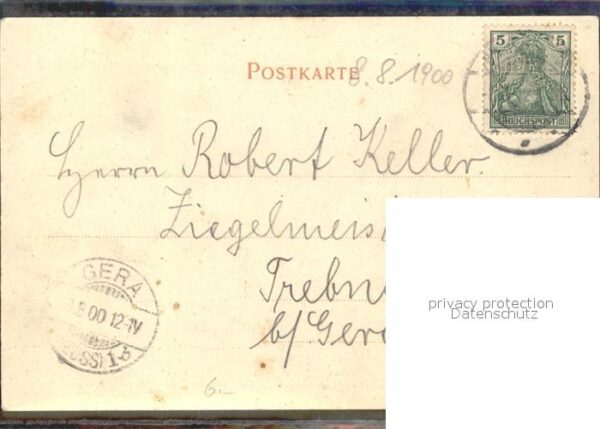 POSTKARTE
8.8.1900
5 5
REICHSPOST
Herrn Robert Keller.
Ziegelmeis
Trebn
b/Gera
GERA
00 12-1V
USS) 1 b
6.-
privacy protection
Datenschutz